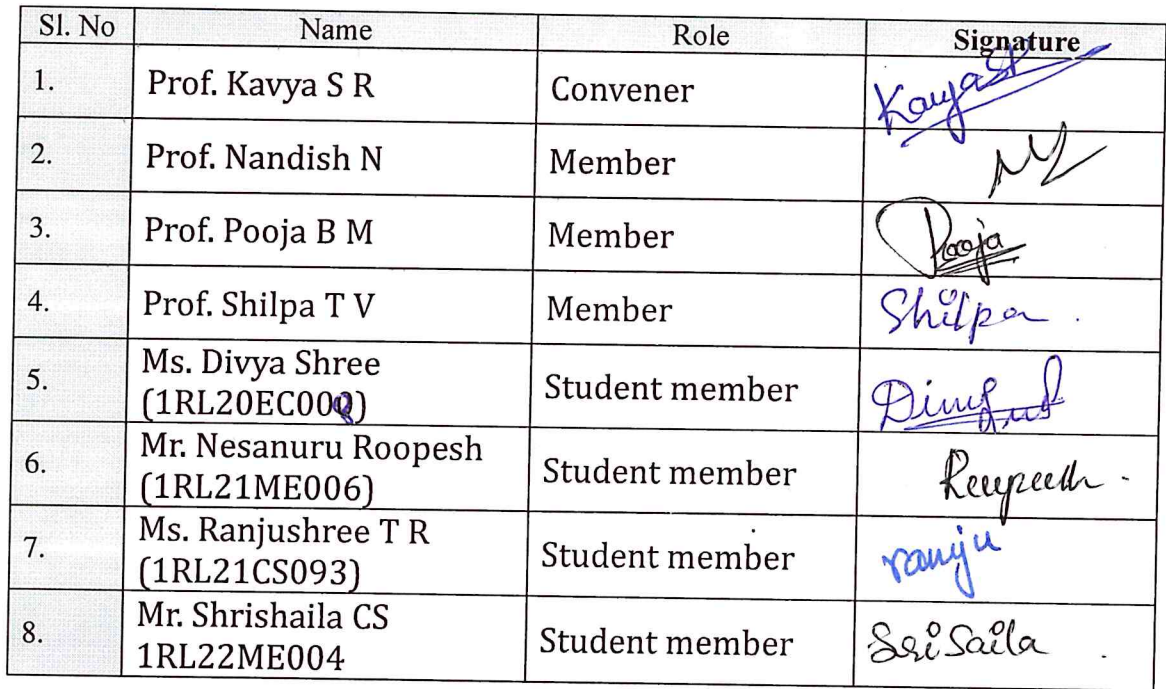 Sl. No Name Role Signature
1. Prof. Kavya S R Convener KavyaSR
2. Prof. Nandish N Member
3. Prof. Pooja B M Member Pooja
4. Prof. Shilpa T V Member Shilpa .
5. Ms. Divya Shree
(1RL20EC00) Student member
6. Mr. Nesanuru Roopesh
(1RL21ME006) Student member
7. Ms. Ranjushree T R
(1RL21CS093) Student member ranju
8. Mr. Shrishaila CS
1RL22ME004 Student member SriSaila